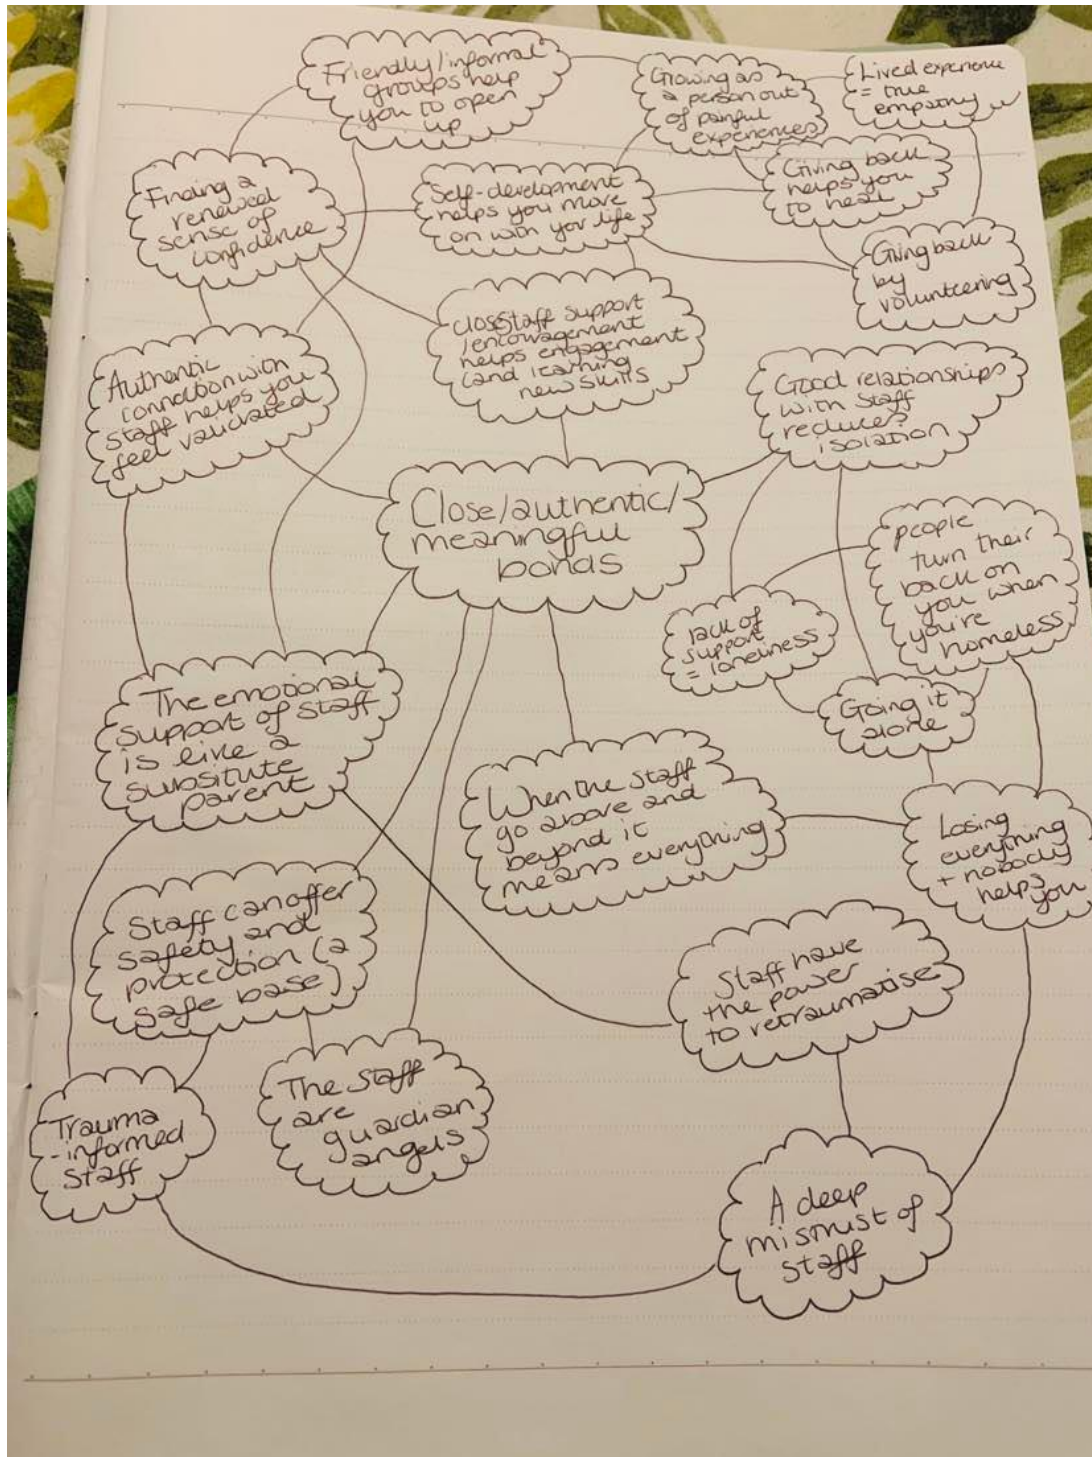 Friendly/informal
groups help
you to open
up
Growing as
a person out
of painful
experiences
Lived experience
= true
empathy
Finding a
renewed
sense of
confidence
Self-development
helps you move
on with your life
Giving back
helps you
to heal
Giving back
by
volunteering
Authentic
connection with
staff helps you
feel validated
close staff support
/encouragement
helps engagement
(and learning
new skills
Good relationships
with staff
reduces?
isolation
Close/authentic/
meaningful
bonds
people
turn their
back on
you when
you're
homeless
lack of
support
= loneliness
Going it
alone
The emotional
support of staff
is like a
subsitute
parent
When the staff
go above and
beyond it
means everything
Losing
everything
+ nobody
helps
you
Staff can offer
safety and
protection (a
safe base)
Staff have
the power
to retraumatise
The staff
are
guardian
angels
Trauma
-informed
staff
A deep
mistrust of
staff